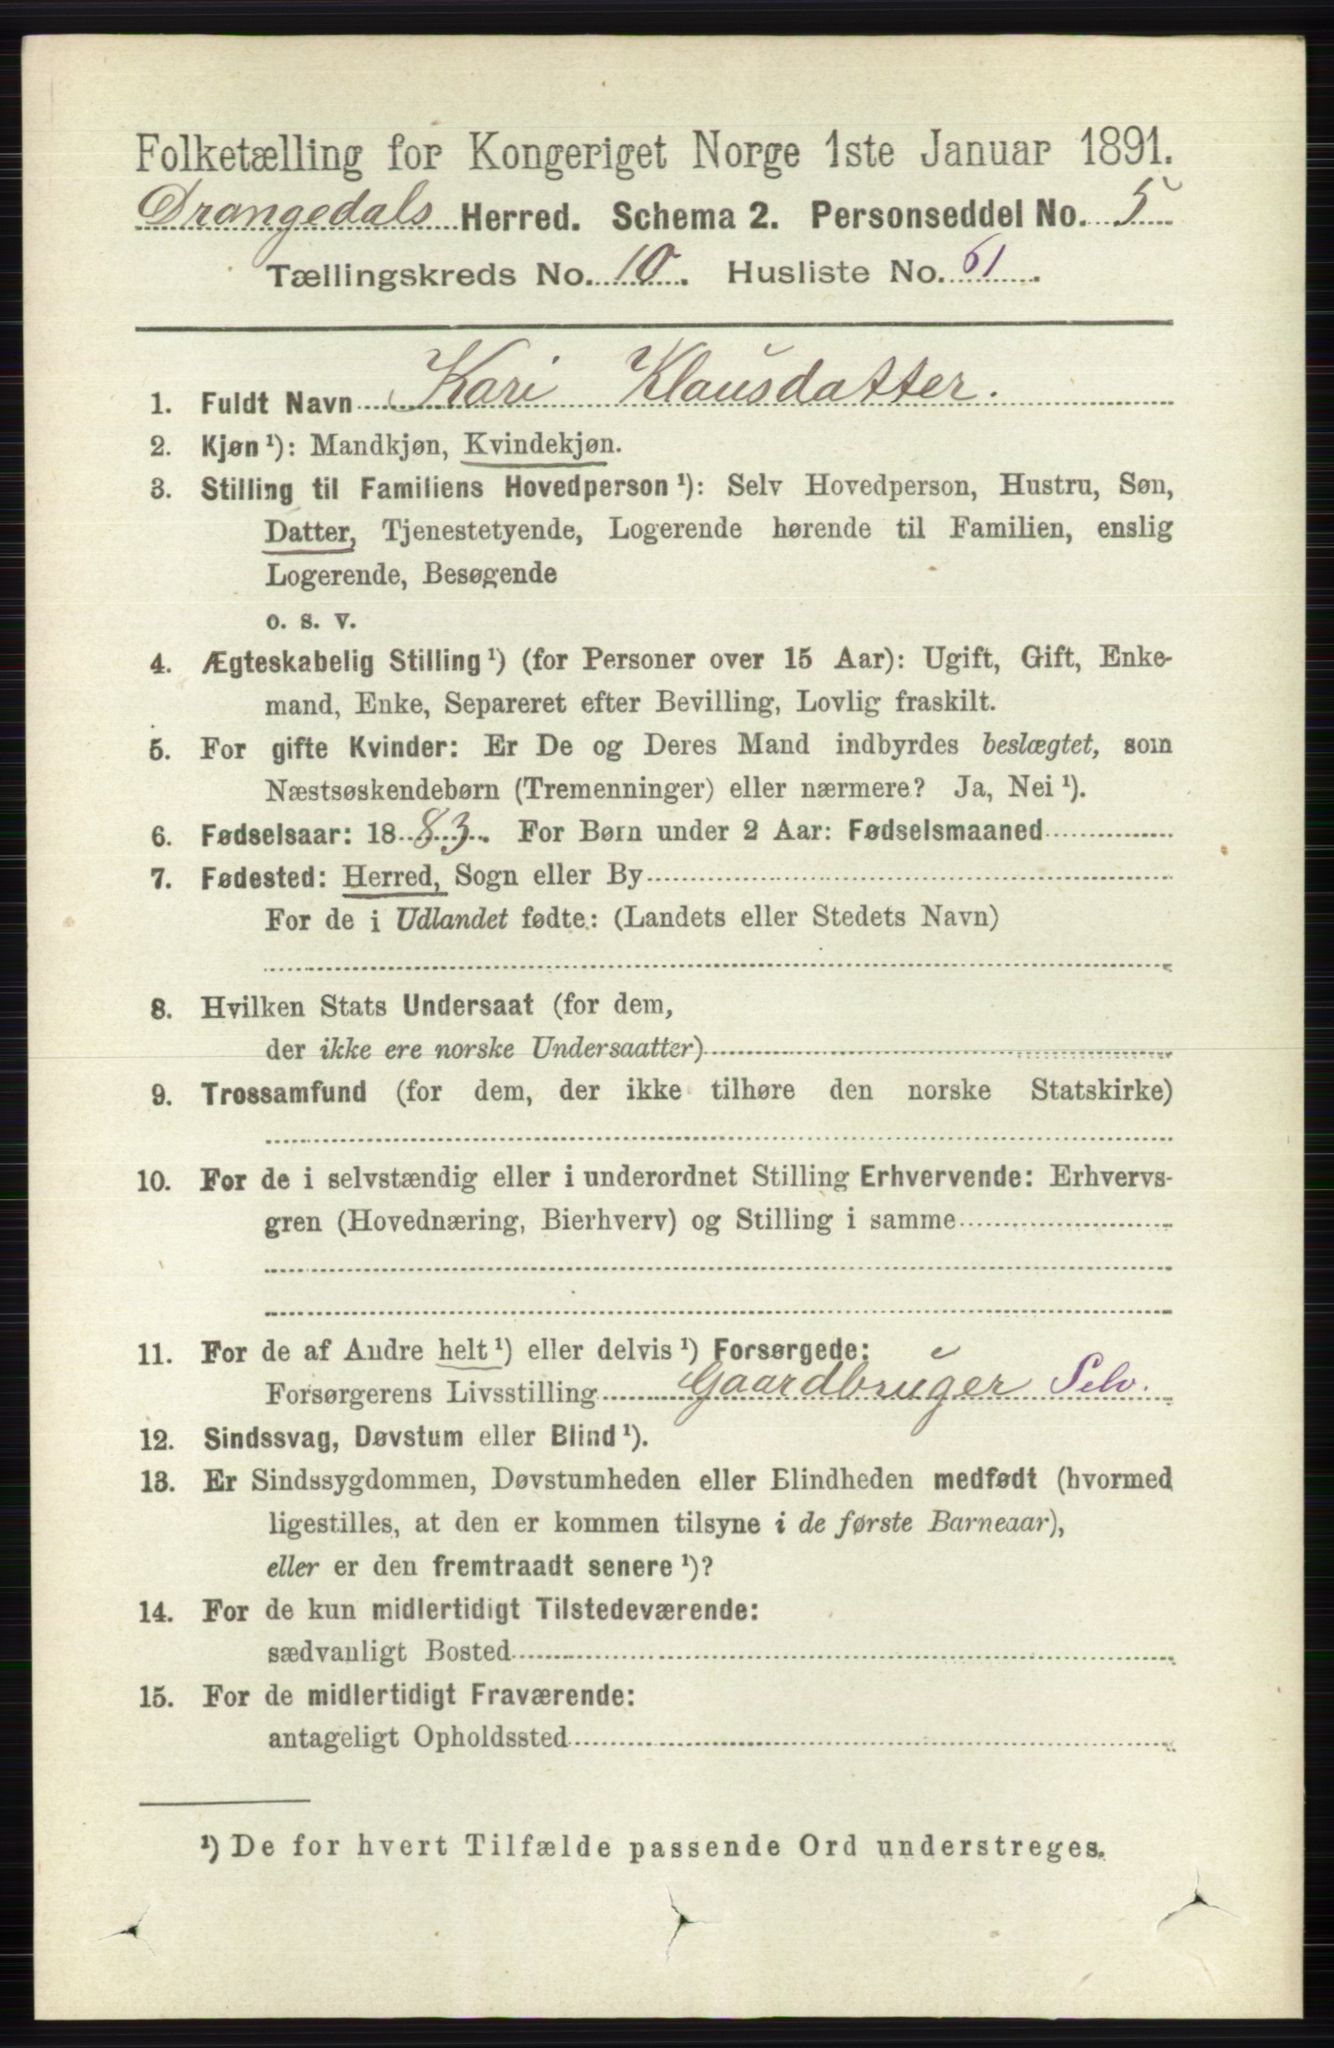 Folketælling for Kongeriget Norge 1ste Januar 1891.
Drangedals Herred. Schema 2. Personseddel No. 5
Tællingskreds No. 10. Husliste No. 61.
1. Fuldt Navn Kari Klausdatter.
2. Kjøn ¹): Mandkjøn, Kvindekjøn.
3. Stilling til Familiens Hovedperson ¹): Selv Hovedperson, Hustru, Søn,
Datter, Tjenestetyende, Logerende hørende til Familien, enslig
Logerende, Besøgende
o. s. v.
4. Ægteskabelig Stilling ¹) (for Personer over 15 Aar): Ugift, Gift, Enke-
mand, Enke, Separeret efter Bevilling, Lovlig fraskilt.
5. For gifte Kvinder: Er De og Deres Mand indbyrdes beslægtet, som
Næstsøskendebørn (Tremenninger) eller nærmere? Ja, Nei ¹).
6. Fødselsaar: 1883. For Børn under 2 Aar: Fødselsmaaned
7. Fødested: Herred, Sogn eller By
For de i Udlandet fødte: (Landets eller Stedets Navn)
8. Hvilken Stats Undersaat (for dem,
der ikke ere norske Undersaatter)
9. Trossamfund (for dem, der ikke tilhøre den norske Statskirke)
10. For de i selvstændig eller i underordnet Stilling Erhvervende: Erhvervs-
gren (Hovednæring, Bierhverv) og Stilling i samme
11. For de af Andre helt ¹) eller delvis ¹) Forsørgede:
Forsørgerens Livsstilling Gaardbruger Selv.
12. Sindssvag, Døvstum eller Blind ¹).
13. Er Sindssygdommen, Døvstumheden eller Blindheden medfødt (hvormed
ligestilles, at den er kommen tilsyne i de første Barneaar),
eller er den fremtraadt senere ¹)?
14. For de kun midlertidigt Tilstedeværende:
sædvanligt Bosted
15. For de midlertidigt Fraværende:
antageligt Opholdssted
¹) De for hvert Tilfælde passende Ord understreges.